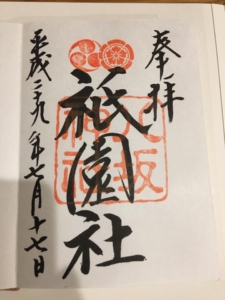 奉拝
八坂神社
祇園社
平成二十九年七月十七日